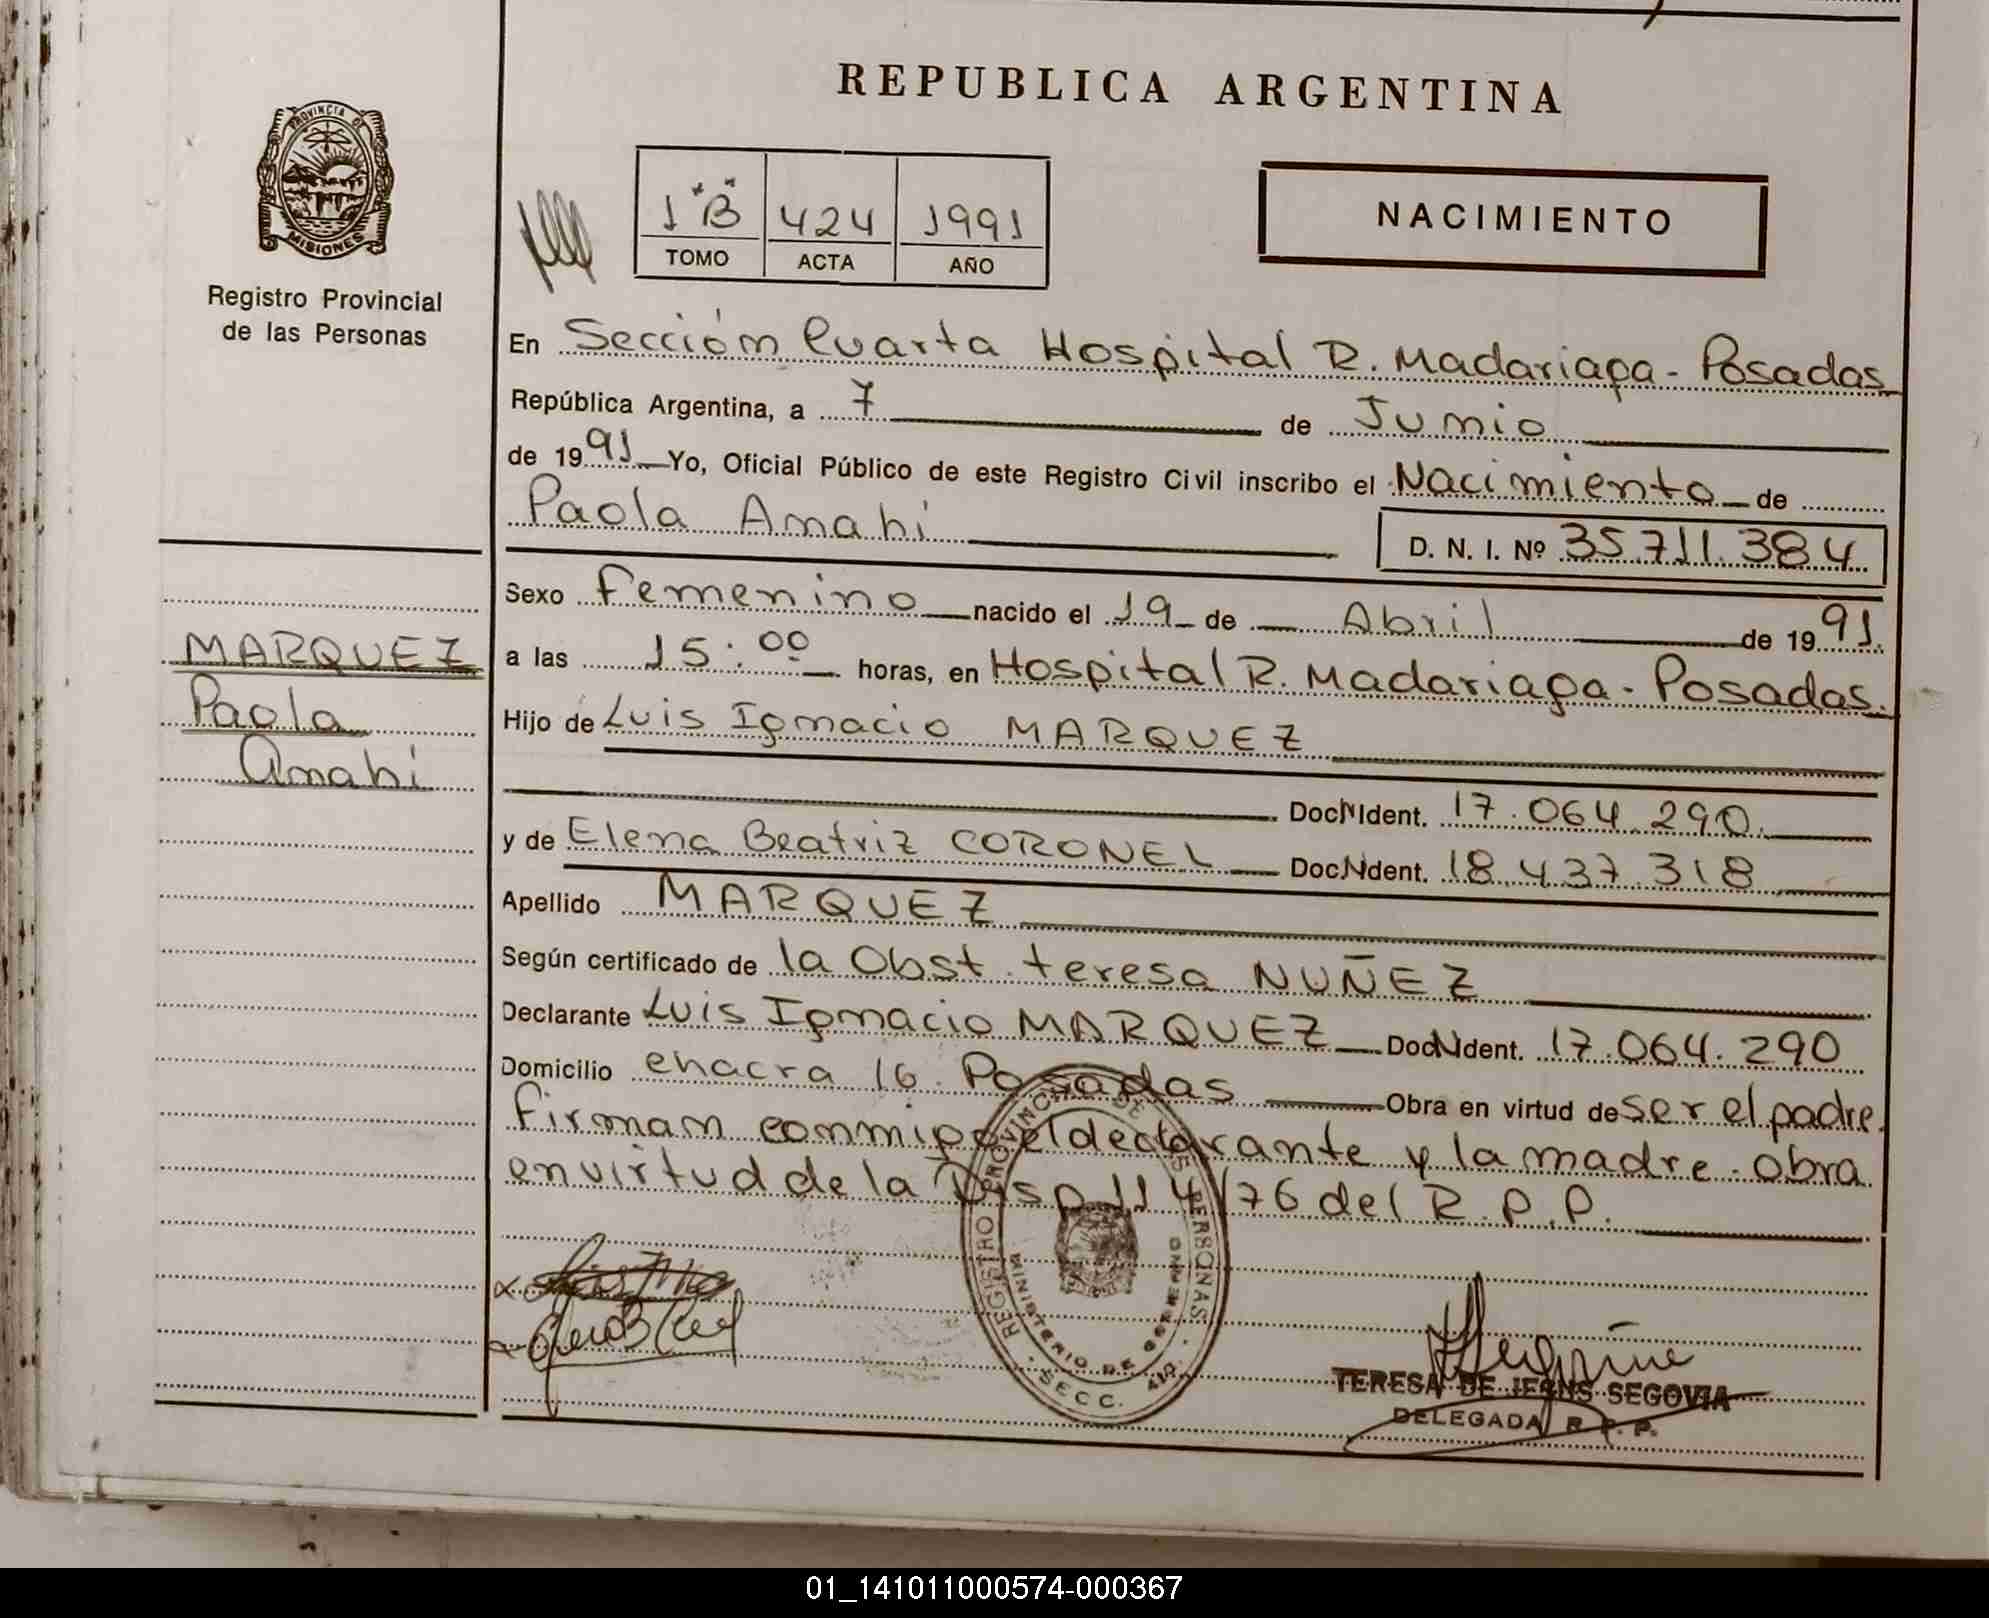 REPUBLICA ARGENTINA
PROVINCIA DE
MISIONES
Registro Provincial
de las Personas
1 "B" 424 1991
TOMO ACTA AÑO
NACIMIENTO
En Sección Cuarta Hospital R. Madariaga - Posadas
República Argentina, a 7 de Junio
de 1991 Yo, Oficial Público de este Registro Civil inscribo el Nacimiento de
Paola Anahi
D. N. I. Nº 35.711.384
Sexo Femenino nacido el 19 de Abril de 1991.
MARQUEZ
Paola
Anahi
a las 15:00 horas, en Hospital R. Madariaga - Posadas.
Hijo de Luis Ignacio MARQUEZ
Doc. Ident. 17.064.290.
y de Elena Beatriz CORONEL Doc. Ident. 18.437.318
Apellido MARQUEZ
Según certificado de la Obst. teresa NUÑEZ
Declarante Luis Ignacio MARQUEZ Doc. Ident. 17.064.290
Domicilio chacra 16. Posadas Obra en virtud de ser el padre.
Firman conmigo el declarante y la madre. obra
en virtud de la Disp. 114/76 del R.P.P.
REGISTRO PROVINCIAL DE LAS PERSONAS
MINISTERIO DE GOBIERNO
SECC. 4ta.
TERESA DE JESUS SEGOVIA
DELEGADA R. P. P.
01_141011000574-000367